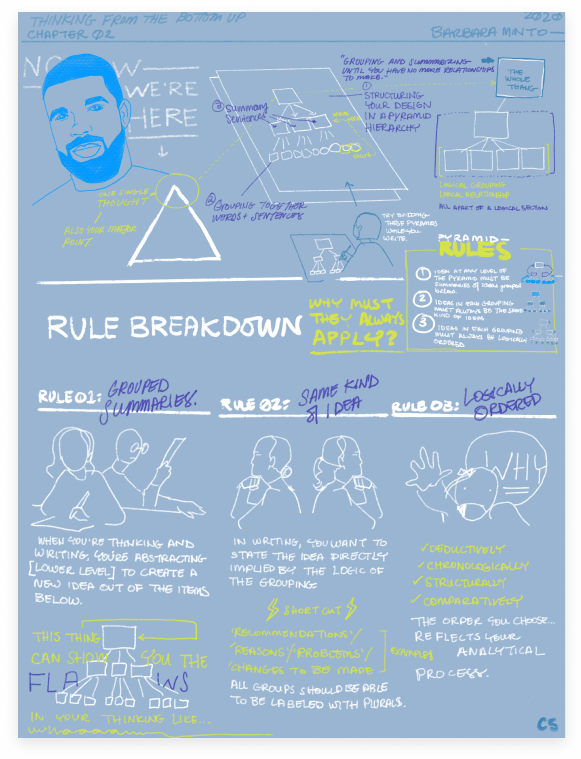 THINKING FROM THE BOTTOM UP
2020
CHAPTER 02
BARBARA MINTO
NO
NOW
WE'RE
HERE
"GROUPING AND SUMMARIZING
UNTIL YOU HAVE NO MORE RELATIONSHIPS
TO MAKE."
THE
WHOLE
THANG
①
STRUCTURING
YOUR DESIGN
IN A PYRAMID
HIERARCHY
③ SUMMARY
SENTENCES
② GROUPING TOGETHER
WORDS + SENTENCES
LOGICAL GROUPING
LOGICAL RELATIONSHIP
ALL APART OF A LOGICAL SECTION
ONE SINGLE
THOUGHT
ALSO YOUR MAJOR
POINT
TRY BUILDING
THESE PYRAMIDS
WHILE YOU
WRITE.
PYRAMID
RULES
① IDEAS AT ANY LEVEL OF
THE PYRAMID MUST BE
SUMMARIES OF IDEAS GROUPED
BELOW.
② IDEAS IN EACH GROUPING
MUST ALWAYS BE THE SAME
KIND OF IDEAS
③ IDEAS IN EACH GROUPING
MUST ALWAYS BE LOGICALLY
ORDERED.
RULE BREAKDOWN
WHY MUST
THEY ALWAYS
APPLY?
RULE 01: GROUPED
SUMMARIES.
RULE 02: SAME KIND
OF IDEA
RULE 03: LOGICALLY
ORDERED
WHY
WHEN YOU'RE THINKING AND
WRITING, YOU'RE ABSTRACTING
[LOWER LEVEL] TO CREATE A
NEW IDEA OUT OF THE ITEMS
BELOW.
THIS THING
CAN SHOW YOU THE
FLAWS
IN YOUR THINKING LIKE...
IN WRITING, YOU WANT TO
STATE THE IDEA DIRECTLY
IMPLIED BY THE LOGIC OF
THE GROUPING
SHORT CUT
'RECOMMENDATIONS'/
'REASONS'/'PROBLEMS'/
'CHANGES TO BE MADE
EXAMPLES
ALL GROUPS SHOULD BE ABLE
TO BE LABELED WITH PLURALS.
✓DEDUCTIVELY
✓CHRONOLOGICALLY
✓STRUCTURALLY
✓COMPARATIVELY
THE ORDER YOU CHOOSE...
REFLECTS YOUR
ANALYTICAL
PROCESS.
CS